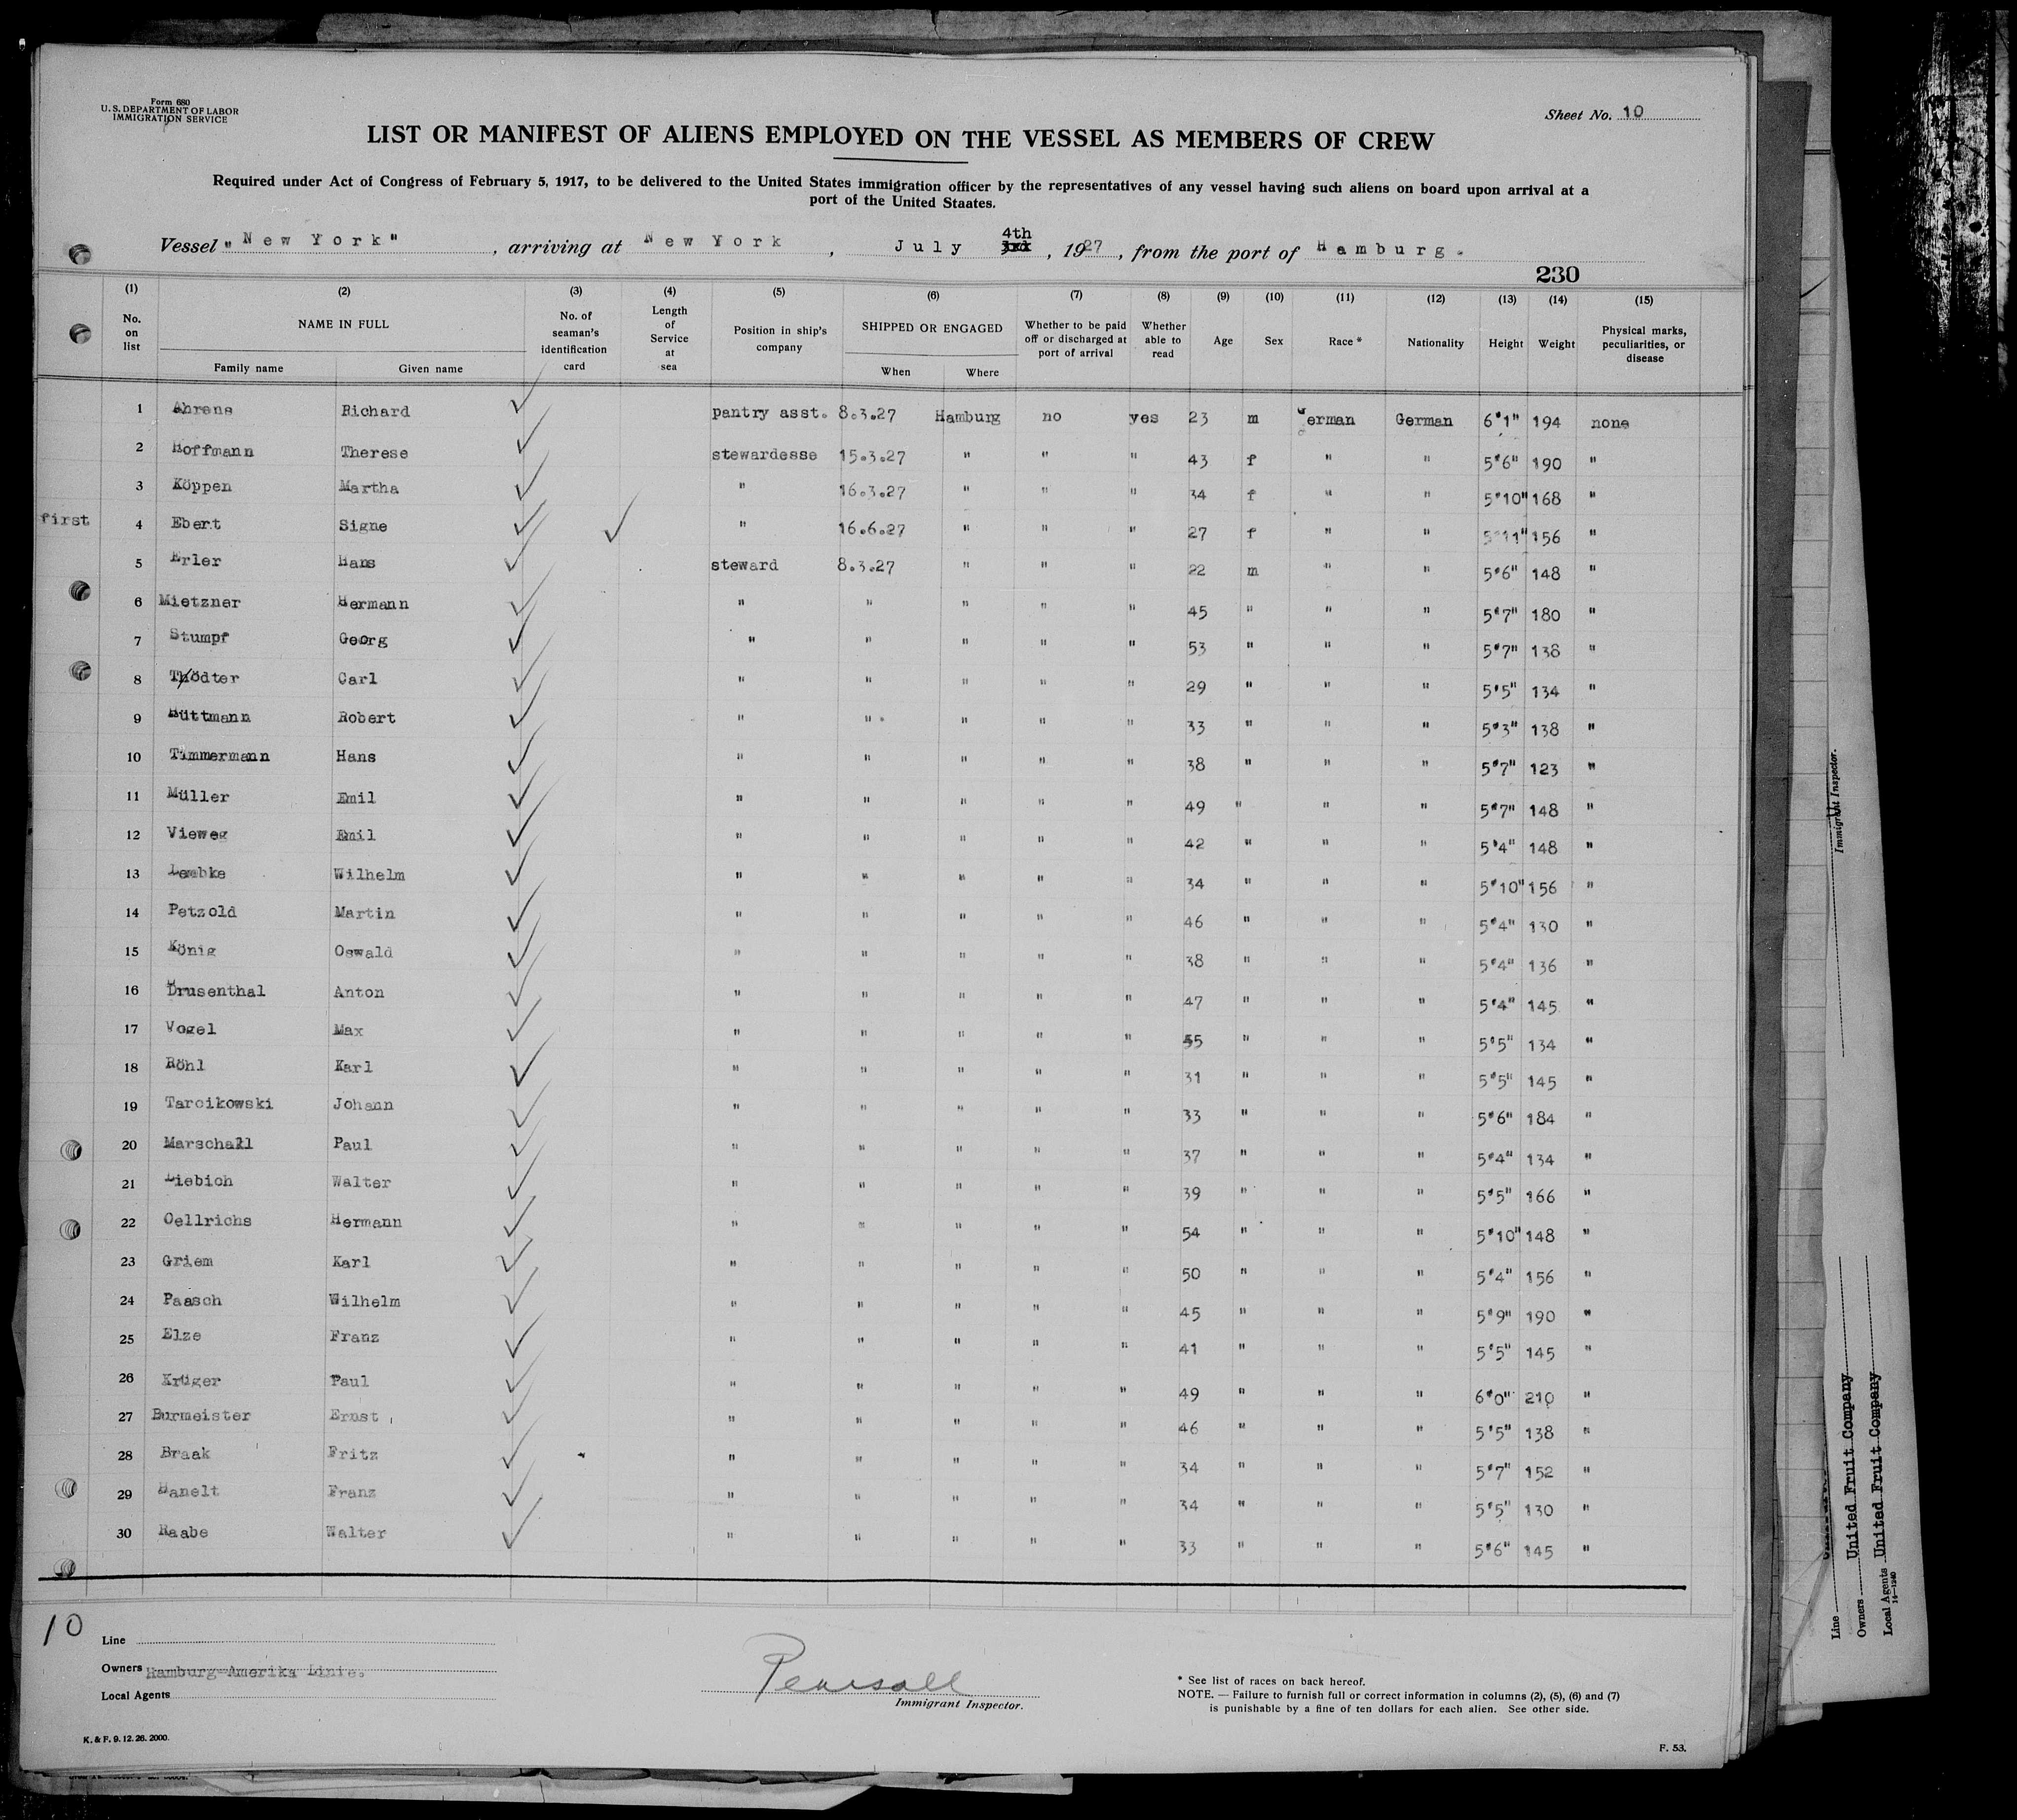 Form 680
U. S. DEPARTMENT OF LABOR
IMMIGRATION SERVICE
Sheet No. 10
LIST OR MANIFEST OF ALIENS EMPLOYED ON THE VESSEL AS MEMBERS OF CREW
Required under Act of Congress of February 5, 1917, to be delivered to the United States immigration officer by the representatives of any vessel having such aliens on board upon arrival at a
port of the United Staates.
4th
Vessel "New York", arriving at New York, July 3rd, 1927, from the port of Hamburg.
230
(1) (2) (3) (4) (5) (6) (7) (8) (9) (10) (11) (12) (13) (14) (15)
No. on list NAME IN FULL Family name Given name No. of seaman's identification card Length of Service at sea Position in ship's company SHIPPED OR ENGAGED When Where Whether to be paid off or discharged at port of arrival Whether able to read Age Sex Race * Nationality Height Weight Physical marks, peculiarities, or disease
1 Ahrens Richard pantry asst. 8.3.27 Hamburg no yes 23 m German German 6'1" 194 none
2 Hoffmann Therese stewardesse 15.3.27 " " " 43 f " " 5'6" 190 "
3 Köppen Martha " 16.3.27 " " " 34 f " " 5'10" 168 "
first 4 Ebert Signe " 16.6.27 " " " 27 f " " 5'11" 156 "
5 Erler Hans steward 8.3.27 " " " 22 m " " 5'6" 148 "
6 Mietzner Hermann " " " " " 45 " " " 5'7" 180 "
7 Stumpf Georg " " " " " 53 " " " 5'7" 138 "
8 Thödter Carl " " " " " 29 " " " 5'5" 134 "
9 Hüttmann Robert " " " " " 33 " " " 5'3" 138 "
10 Timmermann Hans " " " " " 38 " " " 5'7" 123 "
11 Müller Emil " " " " " 49 " " " 5'7" 148 "
12 Vieweg Emil " " " " " 42 " " " 5'4" 148 "
13 Lembke Wilhelm " " " " " 34 " " " 5'10" 156 "
14 Petzold Martin " " " " " 46 " " " 5'4" 130 "
15 König Oswald " " " " " 38 " " " 5'4" 136 "
16 Drusenthal Anton " " " " " 47 " " " 5'4" 145 "
17 Vogel Max " " " " " 55 " " " 5'5" 134 "
18 Röhl Karl " " " " " 31 " " " 5'5" 145 "
19 Tarcikowski Johann " " " " " 33 " " " 5'6" 184 "
20 Marschall Paul " " " " " 37 " " " 5'4" 134 "
21 Liebich Walter " " " " " 39 " " " 5'5" 166 "
22 Oellrichs Hermann " " " " " 54 " " " 5'10" 148 "
23 Griem Karl " " " " " 50 " " " 5'4" 156 "
24 Paasch Wilhelm " " " " " 45 " " " 5'9" 190 "
25 Elze Franz " " " " " 41 " " " 5'5" 145 "
26 Krüger Paul " " " " " 49 " " " 6'0" 210 "
27 Burmeister Ernst " " " " " 46 " " " 5'5" 138 "
28 Braak Fritz " " " " " 34 " " " 5'7" 152 "
29 Hanelt Franz " " " " " 34 " " " 5'5" 130 "
30 Raabe Walter " " " " " 33 " " " 5'6" 145 "
10
Line
Owners Hamburg-Amerika Linie.
Local Agents
Pearsall
Immigrant Inspector.
* See list of races on back hereof.
NOTE. — Failure to furnish full or correct information in columns (2), (5), (6) and (7)
is punishable by a fine of ten dollars for each alien. See other side.
K. & F. 9. 12. 26. 2000.
F. 53.
Immigrant Inspector.
Line
Owners United Fruit Company
Local Agents United Fruit Company
14—1240